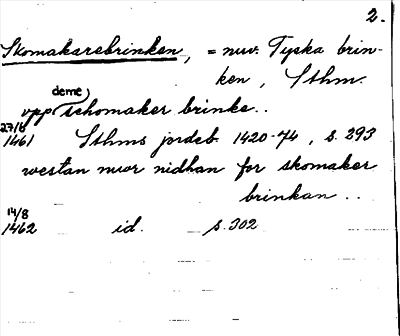 2.
Skomakarebrinken, = nuv. Tyska brin-
ken, Sthm.
upp deme schomaker brinke..
27/8
1461 Sthms jordeb. 1420-74, s. 293
westan mwr nidhan for skomaker
brinkan ...
14/8
1462 id. s. 302